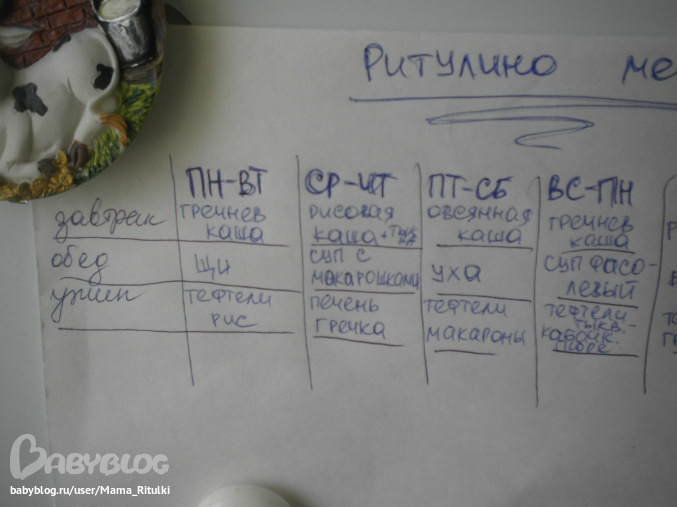 РИТУЛИНО ме
ПН-ВТ СР-ЧТ ПТ-СБ ВС-ПН
завтрак гречнев каша рисовая каша + тык ва овсянная каша гречнев каша
обед щи суп с макарошками уха суп фасо- левый
ужин тефтели рис печень гречка тефтели макароны тефтели тыкв.- кабачк. пюре
BABYBLOG
babyblog.ru/user/Mama_Ritulki